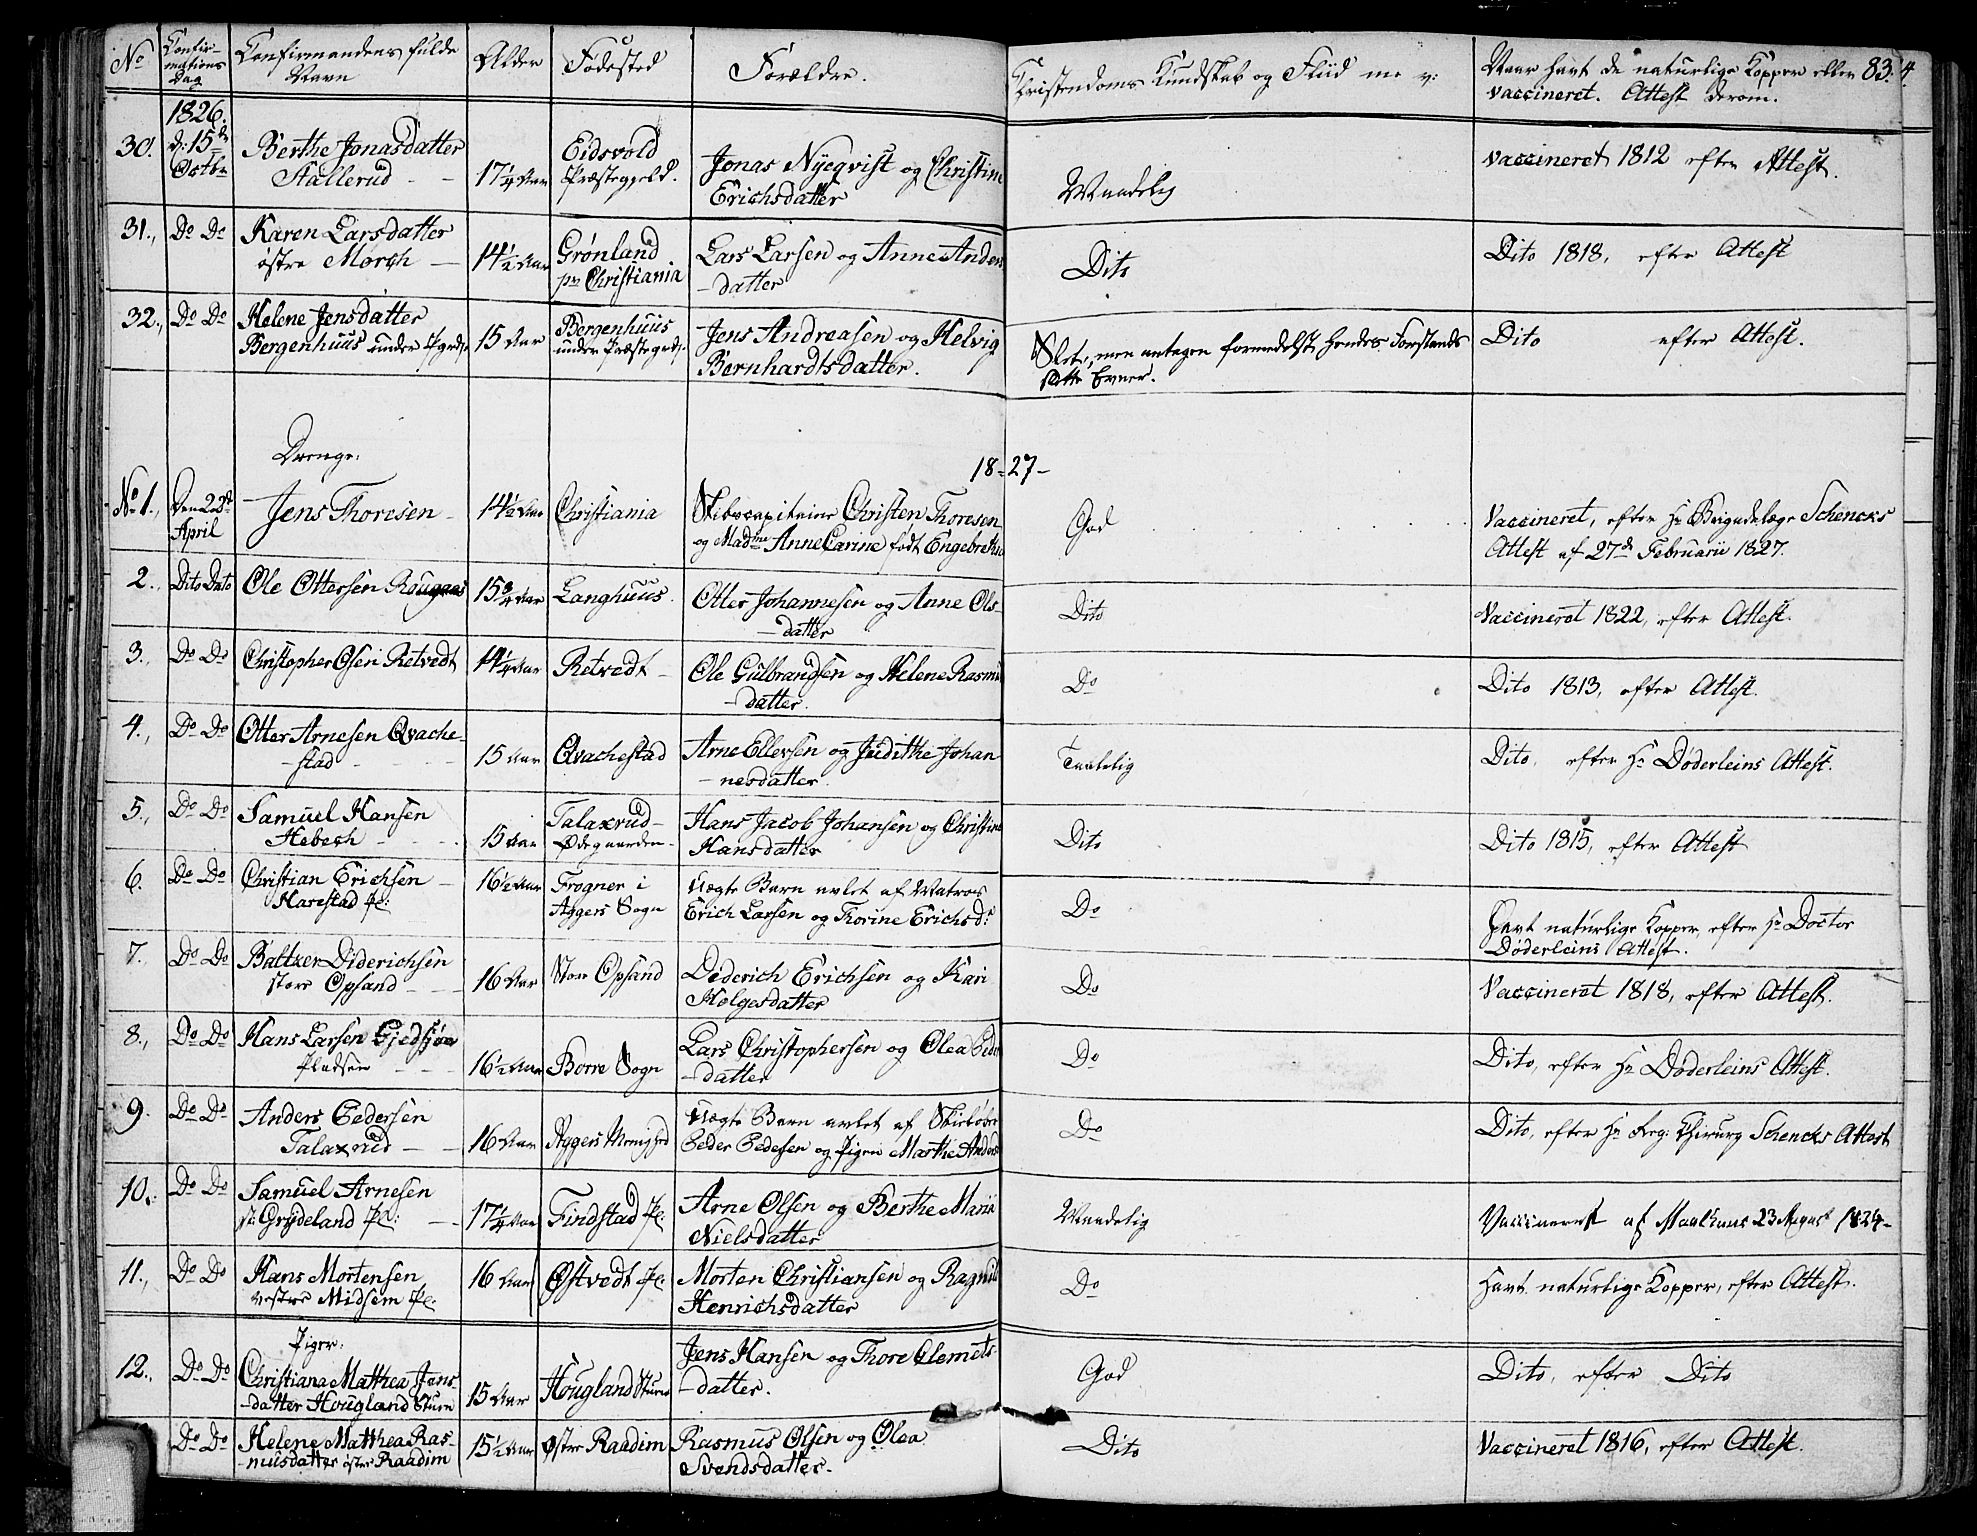 No Confir- Confirmandens fulde Alder Fødested Forældre. Christendoms Kundskab og Fliid m. v: Naar havt de naturlige Kopper eller 83.
mations Navn vaccineret. Attest derom.
Dag
1826.
30. d: 15de Berthe Jonasdatter 17¼ Aar Eidsvold Jonas Nyeqvist og Christine Maadelig vaccineret 1812 efter Attest.
Octbr Stallerud Præstegjeld. Erichsdatter
31., Do Do Karen Larsdatter 14½ Aar Grønland Lars Larsen og Anne Anders Dito Dito 1818, efter Attest
østre Morch pr Christiania -datter
32., Do Do Helene Jensdatter 15 Aar Bergenhuus Jens Andreasen og Helvig Slet, men antagen formedelst hendes Forstands Dito efter Attest.
Bergenhuus under Pgrd. under Præstegrd. Bernhardtsdatter. Evner.
Drenge:
18-27-
No 1., Den 22de Jens Thoresen 14½ Aar Christiania Skibscapitaine Christen Thoresen God Vaccineret, efter Hr Brigadelæge Schencks
April og Madme Anne Carine født Engebretsen Attest af 27de Februarii 1827.
2., Dito Dato Ole Ottersen Rougaas 15¾ Aar Langhuus. Otter Johannesen og Anne Ols Dito Vaccineret 1822, efter Attest.
-datter
3., Do Do Christopher Olsen Retvedt 14¼ Aar Retvedt Ole Gulbrandsen og Helene Rasmus Do Dito 1813, efter Attest.
-datter.
4., Do Do Otter Arnesen Qvache- 15 Aar Qvachestad Arne Ellevsen og Judithe Johan Taalelig Dito, efter Hr Døderleins Attest.
-stad -nesdatter
5., Do Do Samuel Hansen 15 Aar Talaxrud- Hans Jacob Johansen og Christine Dito Dito 1815, efter Attest
Hebech Ødegaarden Hansdatter
6. Do Do Christian Erichsen 16½ Aar Frogner i Uægte Barn avlet af Matros Do Havt naturlige Kopper, efter Hr Doctor
Harestad Pl: Aggers Sogn Erich Larsen og Thorine Erichsdr Døderleins Attest.
7. Do Do Baltzer Diderichsen 16 Aar Store Opsand Diderich Erichsen og Kari Do Vaccineret 1818, efter Attest.
store Opsand Holgesdatter
8., Do Do Hans Larsen Gjedsjøe 16½ Aar Borre Sogn Lars Christophersen og Olea Peder Do Dito, efter Hr Døderleins Attest.
Pladsen -datter
9. Do Do Anders Pedersen 16 Aar Aggers Menighed Uægte Barn avlet af Do Dito, efter Hr Reg: Chirurg Schencks Attest
Talaxrud Peder Pedersen og Pigen Marthe Anders
10. Do Do Samuel Arnesen 17¼ Aar Findstad Pl: Arne Olsen og Berthe Maria Maadelig Vaccineret af Maalhaus 23 August 1824-
Grydeland Pl: Nielsdatter
11., Do Do Hans Mortensen 16 Aar Østvedt Pl: Morten Christiansen og Ragnild Do Havt naturlige Kopper, efter Attest.
vestre Midsem Pl: Henrichsdatter
Piger.
12., Do Do Christiana Mathea Jens- 15 Aar Hougland Stuen Jens Hansen og Thore Clemets God Dito, efter Dito
-datter Hougland Stuen -datter.
Do Do Helene Mathea Ras- 15½ Aar østre Raadim Rasmus Olsen og Olea Dito Vaccineret 1816, efter Attest.
-musdatter østre Raadim Svendsdatter.